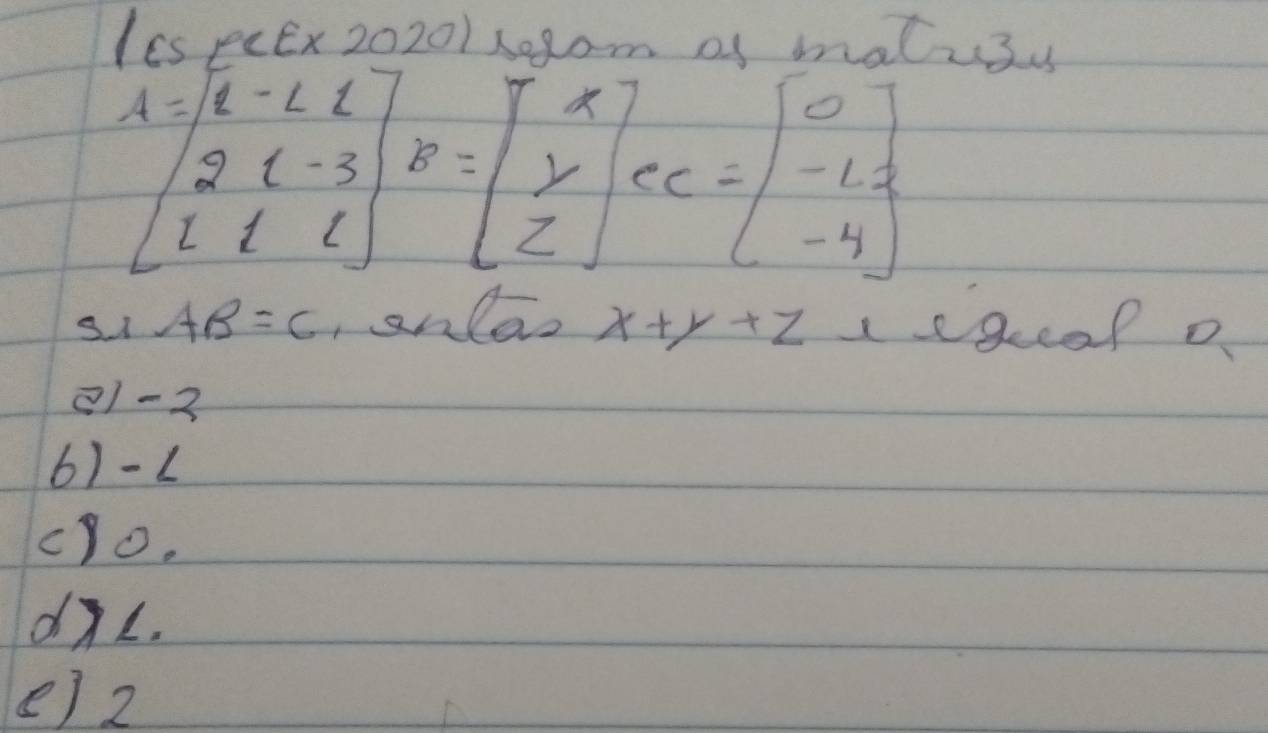 (ESPCEX 2020) sejam as matrizes
A = [1 -1 1
2 1 -3
1 1 1] B = [x
y
z] e C = [0
-12
-4]
se AB = C, então x+y+z é igual a
a) -2
b) -1
c) 0.
d) 1.
e) 2